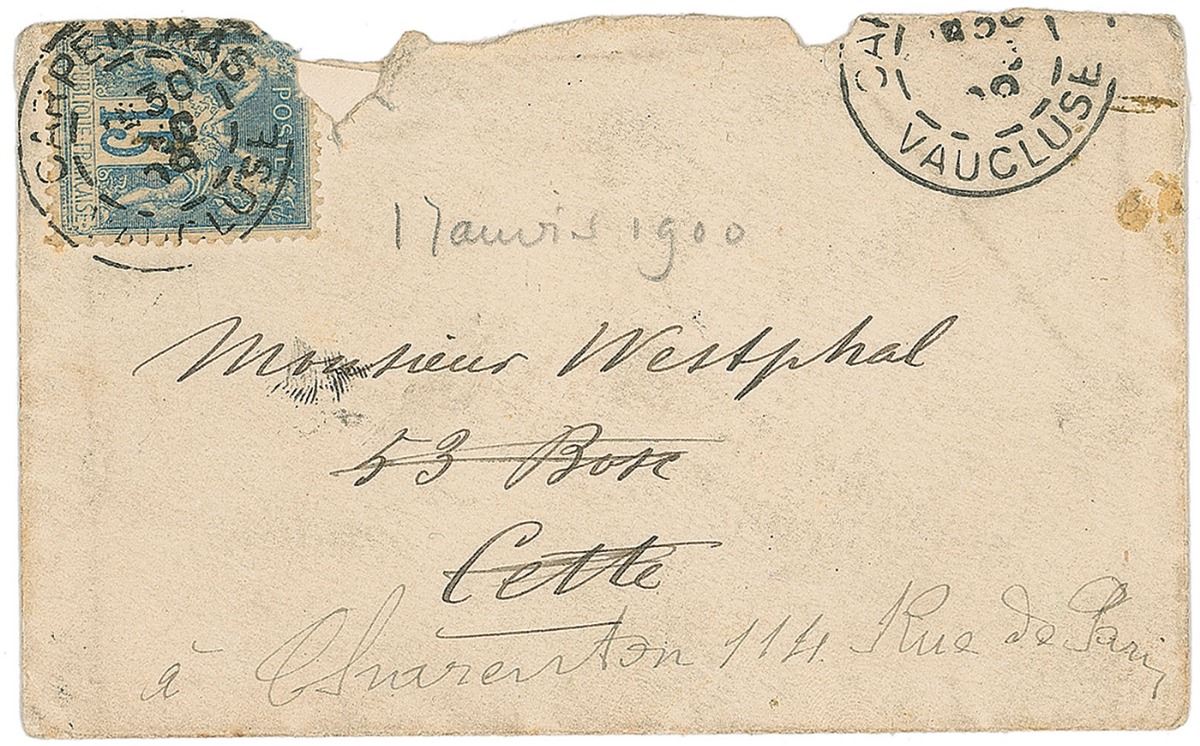 CARPENTRAS
VAUCLUSE
30
POSTE
15
RÉPUBLIQUE FRANÇAISE
CAR
VAUCLUSE
1 Janvier 1900
Monsieur Westphal
53 Bosc
Cette
à Charenton 114 Rue de Paris